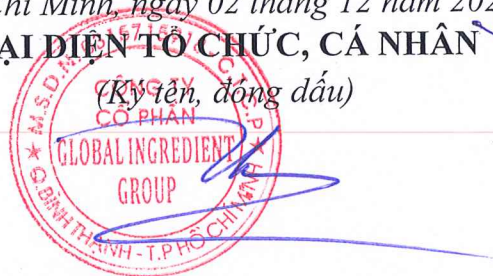 Chí Minh, ngày 02 tháng 12 năm 202
ẠI DIỆN TỔ CHỨC, CÁ NHÂN
(Ký tên, đóng dấu)
CÔNG TY
CỔ PHẦN
GLOBAL INGREDIENT
GROUP
Q.BÌNH THẠNH - T.P HỒ CHÍ MINH